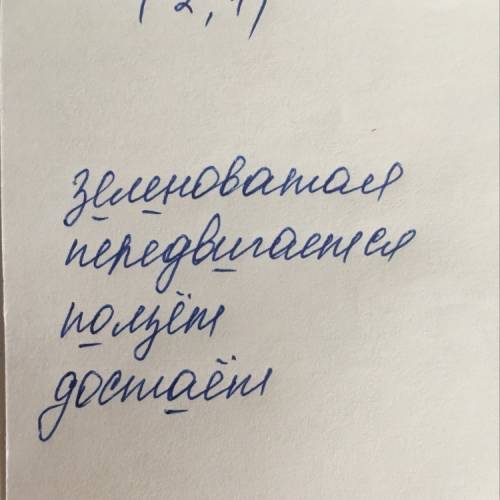 зеленоватая
передвигается
ползёт
достаёт